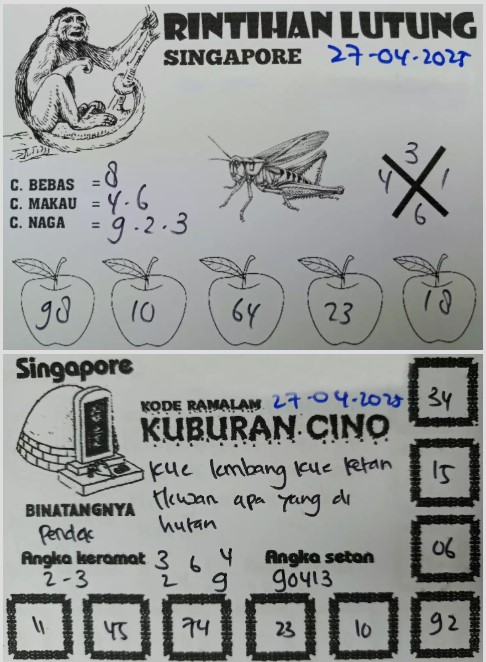 RINTIHAN LUTUNG
SINGAPORE 27-04-2025
C. BEBAS = 8
C. MAKAU = 4.6
C. NAGA = 9.2.3
3
4 1
6
98 10 64 23 18
Singapore
KODE RAMALAM 27-04-2025
KUBURAN CINO
kue lembang kue ketan
hewan apa yang di
hutan
BINATANGNYA
Pendek
Angka keramat 3 6 4 Angka setan
2-3 2 9 90413
34
15
06
92
11 45 74 23 10